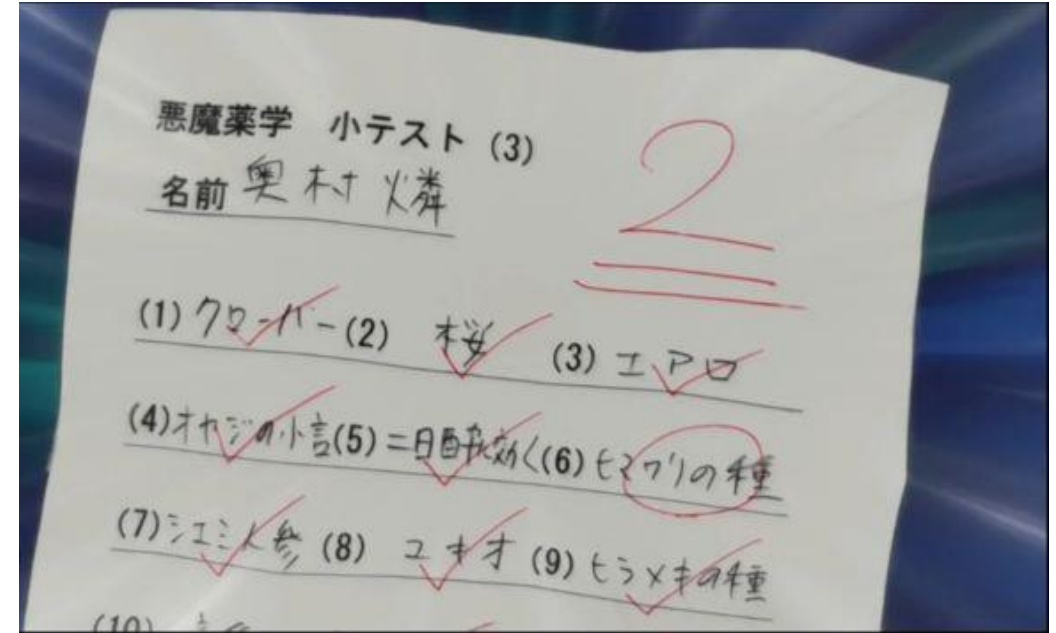 悪魔薬学 小テスト (3)
2
名前 奥村 燐
(1) クローバー (2) 桜 (3) エアロ
(4) オヤジの小言 (5) 二日酔に効く (6) ヒマワリの種
(7) シエミ人参 (8) ユキオ (9) ヒラメキの種
(10)